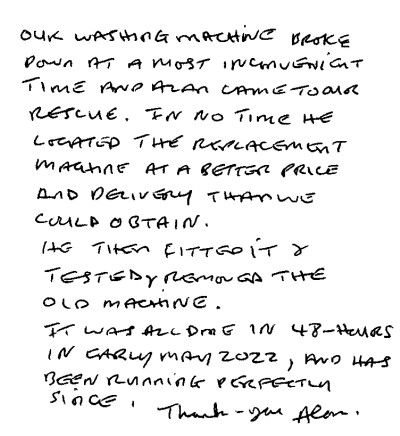 OUR WASHING MACHINE BROKE
DOWN AT A MOST INCONVENIENT
TIME AND ALAN CAME TO OUR
RESCUE. IN NO TIME HE
LOCATED THE REPLACEMENT
MACHINE AT A BETTER PRICE
AND DELIVERY THAN WE
COULD OBTAIN.
HE THEN FITTED IT &
TESTED & REMOVED THE
OLD MACHINE.
IT WAS ALL DONE IN 48-HOURS
IN EARLY MAY 2022, AND HAS
BEEN RUNNING PERFECTLY
SINCE. Thank-you Alan.